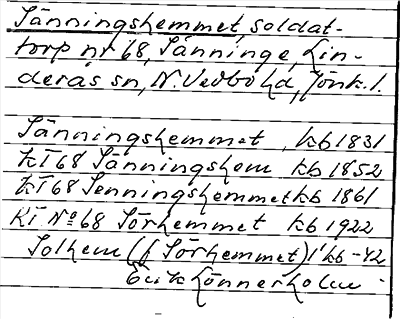 Sänningshemmet, soldat-
torp nr 68, Sänninge, Lin-
derås sn, N. Vedbo hd, Jönk. l.
Sänningshemmet, kb 1831
KT 68 Sänningshem kb 1852
KT 68 Senningshemmet kb 1861
KT No 68 Sörhemmet kb 1922
Solhem (f Sörhemmet) i kb -42
Erik Lönnerholm